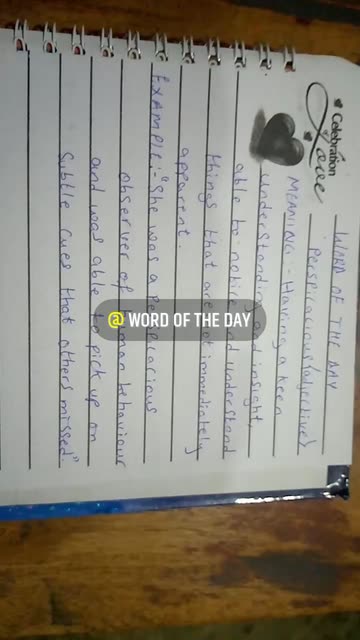 Celebration
Love
WORD OF THE DAY
Perspicacious (adjective)
MEANING:- Having a keen
understanding and insight,
able to notice and understand
things that are not immediately
apparent.
EXAMPLE:- "She was a perspicacious
observer of human behaviour
and was able to pick up on
subtle cues that others missed."
@ WORD OF THE DAY